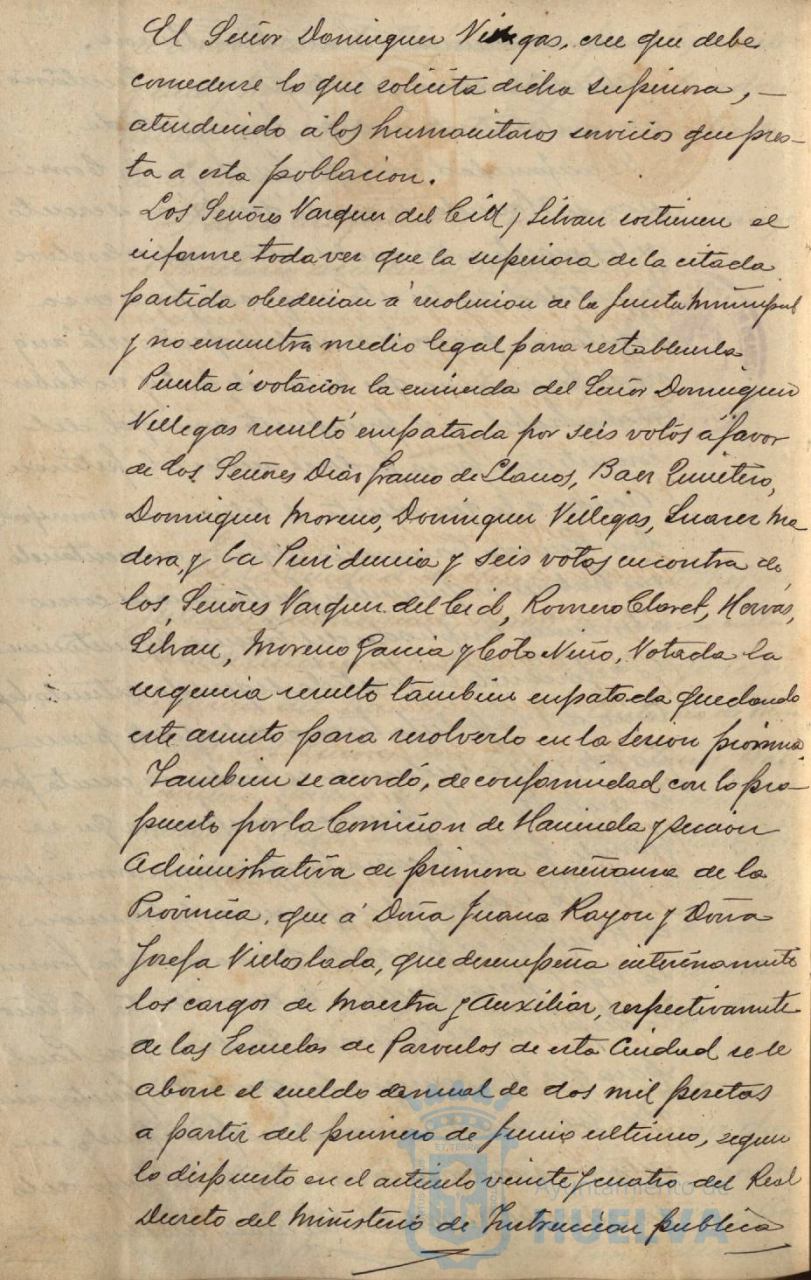 El Señor Dominguez Villegas, cree que debe
concederse lo que solicita dicha superiora, —
atendiendo á los humanitarios servicios que pres-
ta a esta poblacion.
Los Señores Vazquez del Cid y Silvan sostienen el
informe toda vez que la superiora de la citada
partida obedecian á resolucion de la Junta Municipal
y no encuentra medio legal para restablecerla
Puesta á votacion la enmienda del Señor Dominguez
Villegas resultó empatada por seis votos á favor
de los Señores Diaz Franco de Llanos, Baez Quintero,
Dominguez Moreno, Dominguez Villegas, Suarez Ma
dera, y la Presidencia y seis votos en contra de
los, Señores Vazquez del Cid, Romero Claret, Hervás,
Silvan, Moreno Garcia y Coto Niño, Votada la
urgencia resulto tambien empatada quedando
este asunto para resolverlo en la sesion proxima.
Tambien se acordó, de conformidad con lo pro-
puesto por la Comision de Hacienda y seccion
Administrativa de primera enseñanza de la
Provincia, que á Doña Juana Rayon y Doña
Josefa Villoslada, que desempeña interinamente
los cargos de Maestra y Auxiliar, respectivamente
de las Escuelas de Parvulos de esta Ciudad se le
abone el sueldo anual de dos mil pesetas
a partir del primero de Junio ultimo, segun
lo dispuesto en el articulo veinte y cuatro del Real
Decreto del Ministerio de Instruccion publica
Ayuntamiento de
HUELVA